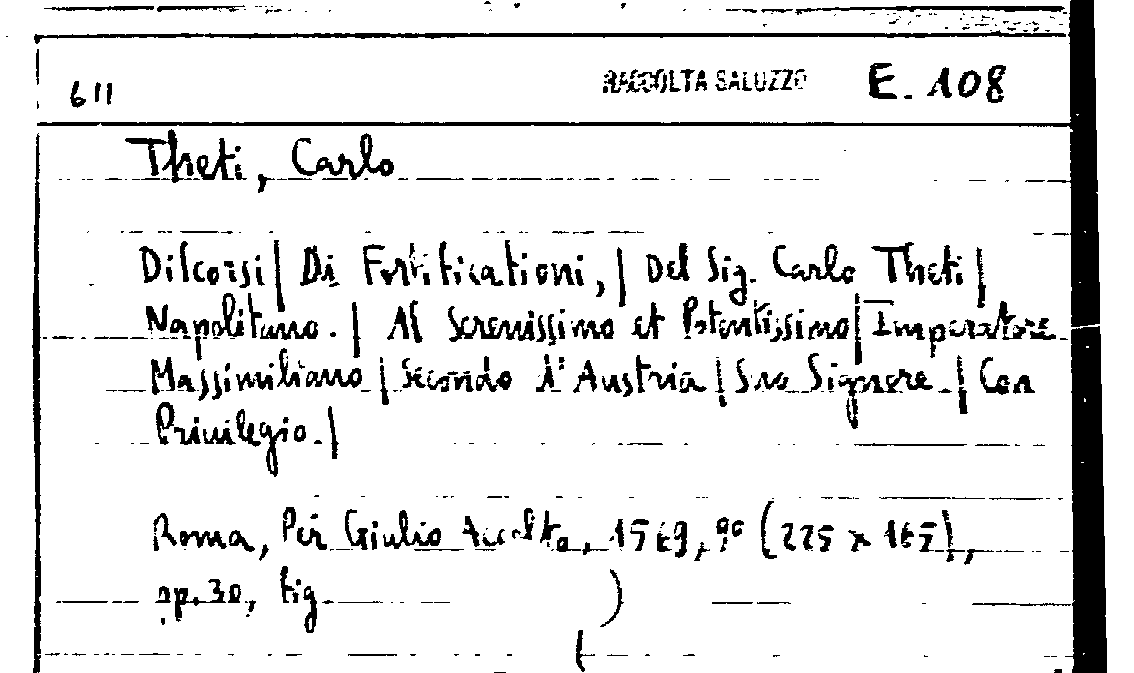 611 RACCOLTA SALUZZO E. 108
Theti, Carlo
Discorsi| Di Fortificationi, | Del Sig. Carlo Theti|
Napolitano. | Al Serenissimo et Potentissimo| Imperatore
Massimiliano | Secondo d'Austria | Suo Signore. | Con
Privilegio. |
Roma, Per Giulio Accolto, 1569, (225 x 165),
pp. 30, fig.